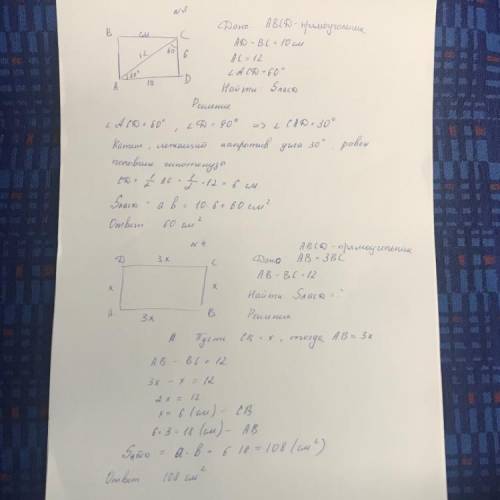 №3
Дано ABCD - прямоугольник
AD = BC = 10 см
AC = 12
∠ACD = 60°
Найти SABCD
B см C
12 60 6
A 30° 10 D
Решение
∠ACD = 60°, ∠D = 90° => ∠CAD = 30°
Катет, лежащий напротив угла 30°, равен
половине гипотенузы
CD = 1/2 AC = 1/2 · 12 = 6 см
SABCD = a b = 10 · 6 = 60 см²
Ответ 60 см²
№4
ABCD - прямоугольник
Дано AB = 3BC
AB - BC = 12
Найти SABCD -
Решение
D 3x C
x x
A 3x B
Пусть CB - x, тогда AB = 3x
AB - BC = 12
3x - x = 12
2x = 12
x = 6 (см) - CB
6 · 3 = 18 (см) - AB
= a · b = 6 · 18 = 108 (см²)
Ответ 108 см²